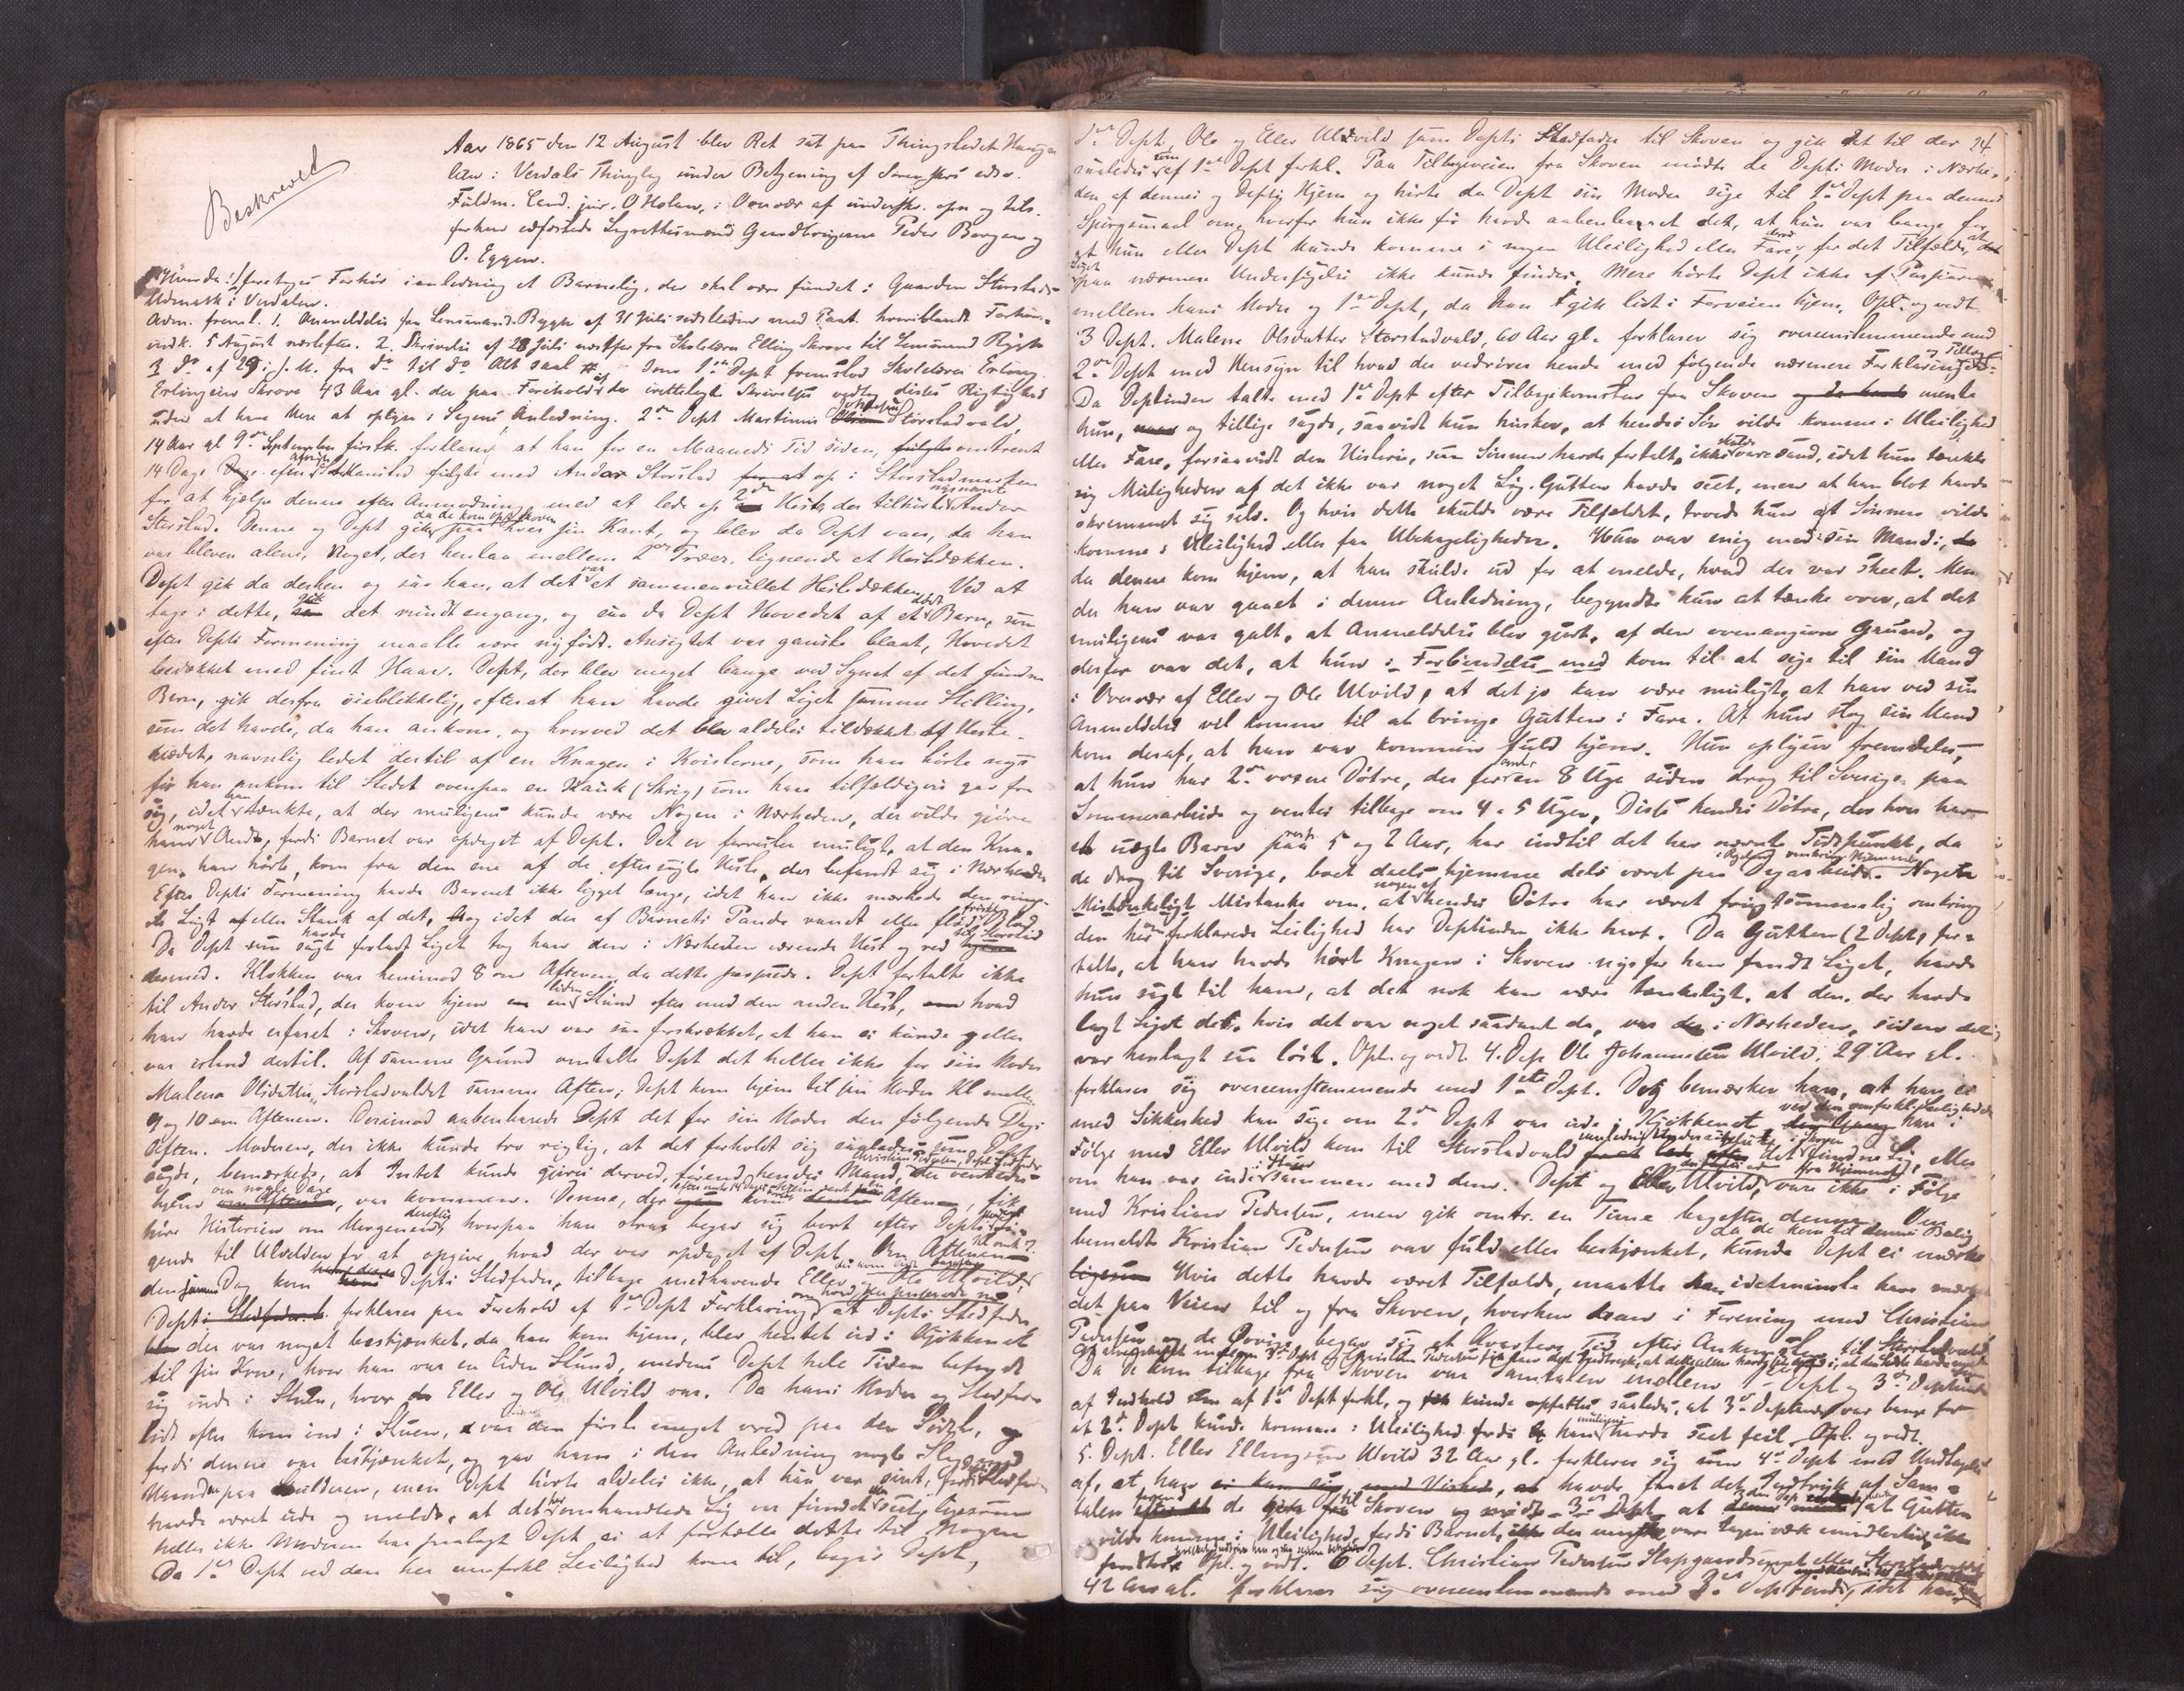 Beskrevet
Aar 1865 den 12 August blev Ret sat paa Thingstedet Haugs-
leten i Verdals Thinglag under Betjening af Sorenskr. edsv.
Fuldm. Cand. jur. O Holam, i Overvær af underskr. opn og tils.
forhen edfæstede Lagrettesmænd Gaardbrugerne Peder Borgen og
O. Eggen.
Hvorda: foretoges Forhør i anledning et Barnelig, der skal være fundet i Gaarden Storstads
Udmark i Verdalen.
Adm. freml. 1. Anmeldelse fra Lensmand Rygh af 31 Juli sidstleden med Paat. hvoriblandt Forhørs-
indk. 5 August næstefter. 2. Skrivelse af 28 Juli næstfør fra Skolelærer Elling Skrove til Lensmand Rygh
3 do af 29 i f. M. fra do til do Alt saal. # Som 1ste Dept fremstod Skolelærer Erling
Erlingsen Skrove 43 Aar gl. der paa Forehold af de irettelagte Skrivelser vedtog disses Rigtighed
uden at have Mere at oplyse i Sagens Anledning. 2den Dept Martinus Johnsen Storstadvald,
14 Aar gl 9de September førstk. forklarer at han for en Maaneds Tid siden, omtrent
14 Dage efter St. Hanstid fulgte med Anders Storstad op i Storstadmarken
for at hjælpe denne efter Anmodning med at lede op 2de Heste, der tilhørte nysnævnte Anders
Storstad. Denne og Dept gik da de kom op i Skoven paa hver sin Kant, og blev da Dept vaer, da han
var bleven alene, Noget, der henlaa imellem 2de Træer, lignende et Hestedækken.
Dept gik da derhen og saa han, at det var et sammenrullet Hestedækken. Ved at
tage i dette, gik det rundt engang, og saa da Dept Hovedet af et dødt Barn, som
efter Depts Formening maatte være nyfødt. Ansigtet var ganske blaat, Hovedet
bedækket med fint Haar. Dept, der blev meget bange ved Synet af det fundne
Barn, gik derfra øieblikkelig, efterat han havde givet Liget samme Stilling,
som det havde, da han ankom, og hvorved det blev aldeles tildækket af Heste-
klædet, navnlig ledet dertil af en Knagen i Kvisterne, som han hørte nys
før han ankom til Stedet ovenpaa en Hauk (Skrig) som han tilfældigvis gav fra
sig, idet han tænkte, at der muligens kunde være Nogen i Nærheden, der vilde gjøre
ham noget Ondt, fordi Barnet var opdaget af Dept. Det er forresten muligt, at den Kna-
gen, han hørte, kom fra den ene af de eftersøgte Heste, der befandt sig i Nærheden
Efter Depts Formening havde Barnet ikke ligget længe, idet han ikke mærkede den ringe-
ste Lugt eller Stank af det, og idet der af Barnets Pande randt eller flød friskt Blod
Da Dept som sagt havde forladt Liget tog han den i Nærheden værende Hest og red til Storstad
dermed. Klokken var henimod 8 om Aftenen, da dette passerede. Dept fortalte ikke
til Anders Storstad, der kom hjem en liden Stund efter med den anden Hest, hvad
han havde erfaret i Skoven, idet han var saa forskrækket, at han ei kunde eller
var istand dertil. Af samme Grund omtalte Dept det heller ikke for sin Moder
Malena Olsdatter, Storstadvaldet samme Aften; Dept kom hjem til sin Moder Kl mellem
9 og 10 om Aftenen. Derimod aabenbarede Dept det for sin Moder den følgende Dags
Aften. Moderen, der ikke kunde tro rigtig, at det forholdt sig saaledes som Dept
sagde, bemærkede, at Intet kunde gjøres derved, førend hendes Mand, Christian Pedersen, Depts Stedfader der ventedes
hjem om nogle Dage, var kommen. Denne, der kom hjem Aften, fik
høre Historien om Morgenen derefter, hvorpaa han strax begav sig bort efter
gende til Ulvilden for at opgive, hvad der var opdaget af Dept. Om Aftenen
den samme Dag kom Depts Stedfader, tilbage medhavende Eller og Ole Ulvild,
forklarer paa Forehold af 1ste Dept Forklaring at Depts Stedfader
der var noget beskjænket, da han kom hjem, blev hentet ind i Kjøkkenet
til sin Kone, hvor han var en liden Stund, medens Dept hele Tiden befandt
sig inde i Stuen, hvor Eller og Ole Ulvild var. Da hans Moder og Stedfader
lidt efter kom ind i Stuen, var den første meget vred paa den Sidste,
fordi denne var beskjænket, og gav ham i den Anledning nogle Slag med
Haanden paa Skulderen, men Dept hørte aldeles ikke, at hun var sint, fordi Stedfaderen
havde været ude og meldt, at det her omhandlede Lig var fundet, ligesom
heller ikke Moderen har paalagt Dept ei at fortælle dette til Nogen
Da 1ste Dept ved den her omforkl Leilighed kom til, begav Dept,
24
1ste Dept, Ole og Eller Ulvild samt Depts Stedfader til Skoven og gik det til der
saaledes som af 1ste Dept forkl. Paa Tilbageveien fra Skoven mødte de Depts Moder i Nærhe-
den af dennes og Depts Hjem og hørte da Dept sin Moder sige til 1ste Dept paa dennes
Spørgsmaal om, hvorfor hun ikke før havde aabenbaret det, at hun var bange for
at hun eller Dept kunde komme i nogen Uleilighed eller Fare derved, for det Tilfælde, at
Liget paa nærmere Undersøgelse ikke kunde findes. Mere hørte Dept ikke af Passiaren
mellem hans Moder og 1ste Dept, da han gik lidt i Forveien hjem. Opl. og vedt.
3 Dept. Malene Olsdatter Storstadvald, 60 Aar gl. forklarer sig overeensstemmende med
2den Dept med Hensyn til hvad der vedrører hende med følgende nærmere Forklaring og Tillæg:
Da Deptinden talte med 1ste Dept efter Tilbagekomsten fra Skoven mente
hun, og tillige sagde, saavidt hun husker, at hendes Søn vilde komme i Uleilighed
eller Fare, forsaavidt den Historie, som Sønnen havde fortalt, ikke skulde være sand, idet hun tænkte
sig Muligheden af det ikke var noget Lig Gutten havde seet, men at han blot havde
skræmmet sig selv. Og hvis dette skulde være Tilfældet, troede hun at Sønnen vilde
komme i Uleilighed eller faa Ubehageligheder. Hun var enig med sin Mand i,
da denne kom hjem, at han skulde ud for at melde, hvad der var skeet. Men
da han var gaaet i denne Anledning, begyndte hun at tænke over, at det
muligens var galt, at Anmeldelse blev gjort, af den ovenangivne Grund, og
derfor var det, at hun i Forbindelse med kom til at sige til sin Mand
i Overvær af Eller og Ole Ulvild, at det jo kan være muligt, at han ved sin
Anmeldelse vil komme til at bringe Gutten i Fare. At hun slog sin Mand
kom deraf, at han var kommen fuld hjem. Hun oplyser fremdeles,
at hun har 2de voxne Døtre, der for en 8 Uger siden drog til Sverige paa
Sommerarbeide og ventes tilbage om 4 a 5 Uger. Disse hendes Døtre, der hver har
et uægte Barn paa resp. 5 og 2 Aar, har indtil det her nævnte Tidspunkt, da
de drog til Sverige, boet deels hjemme dels været paa Dagarbeide i Bygden omkring Hjemmet. Noget
Mistænkeligt Mistanke om, at nogen af hendes Døtre har været frugtsommelig omkring
den her omforklarede Leilighed har Deptinden ikke havt. Da Gutten (2 Dept) for-
talte, at han havde hørt Knagen i Skoven nys før han fandt Liget, havde
hun sagt til ham, at det nok kan være tænkeligt, at den, der havde
lagt Liget der, hvis det var noget saadant der, var i Nærheden, siden det
var henlagt saa løst. Opl. og vedt. 4. Dep Ole Johannessen Ulvild, 29 Aar gl.
forklarer sig overeensstemmende med 1ste Dept. Dog bemærker han, at han ei
med Sikkerhed kan sige om 2den Dept var ude i Kjøkkenet ved den omforkl. Leilighed da han i
Følge med Eller Ulvild kom til Storstadvald det fundne Lig, eller
om han var inde i Stuen sammen med dem. Dept og Eller Ulvild, var ikke i Følge
med Kristian Pedersen, men gik omtr. en Time bagefter denne. Om
bemeldte Kristian Pedersen var fuld eller beskjænket, da de kom til dennes Bolig kunde Dept ei mærke
Hvis dette havde været Tilfælde, maatte han idetmindste have mærket
det paa Veien til og fra Skoven, hvorhen han i Forening med Christian
Pedersen og de Øvrige begav sig et Kvarters Tid efter Ankomsten til Storstadvald.
Da de kom tilbage fra Skoven var Samtalen mellem 1ste Dept og 3die Deptinde
af Indhold som af 1ste Dept forkl, og kunde opfattes saaledes, at 3die Deptinde var bange for
at 2den Dept kunde komme i Uleilighed fordi han muligens havde seet feil. Opl. og vedt.
5. Dept. Eller Ellingsen Ulvild 32 Aar gl. forklarer sig som 4de Dept med Undtagelse
af, at han havde faaet det Indtryk af Sam-
talen de Skoven og 3die Dept, at Gutten
vilde komme i Uleilighed, fordi Barnet
Opl. og vedt. 6 Dept. Christian Pedersen
42 Aar gl. forklarer sig overensstemmende med 3die Deptinde, idet han